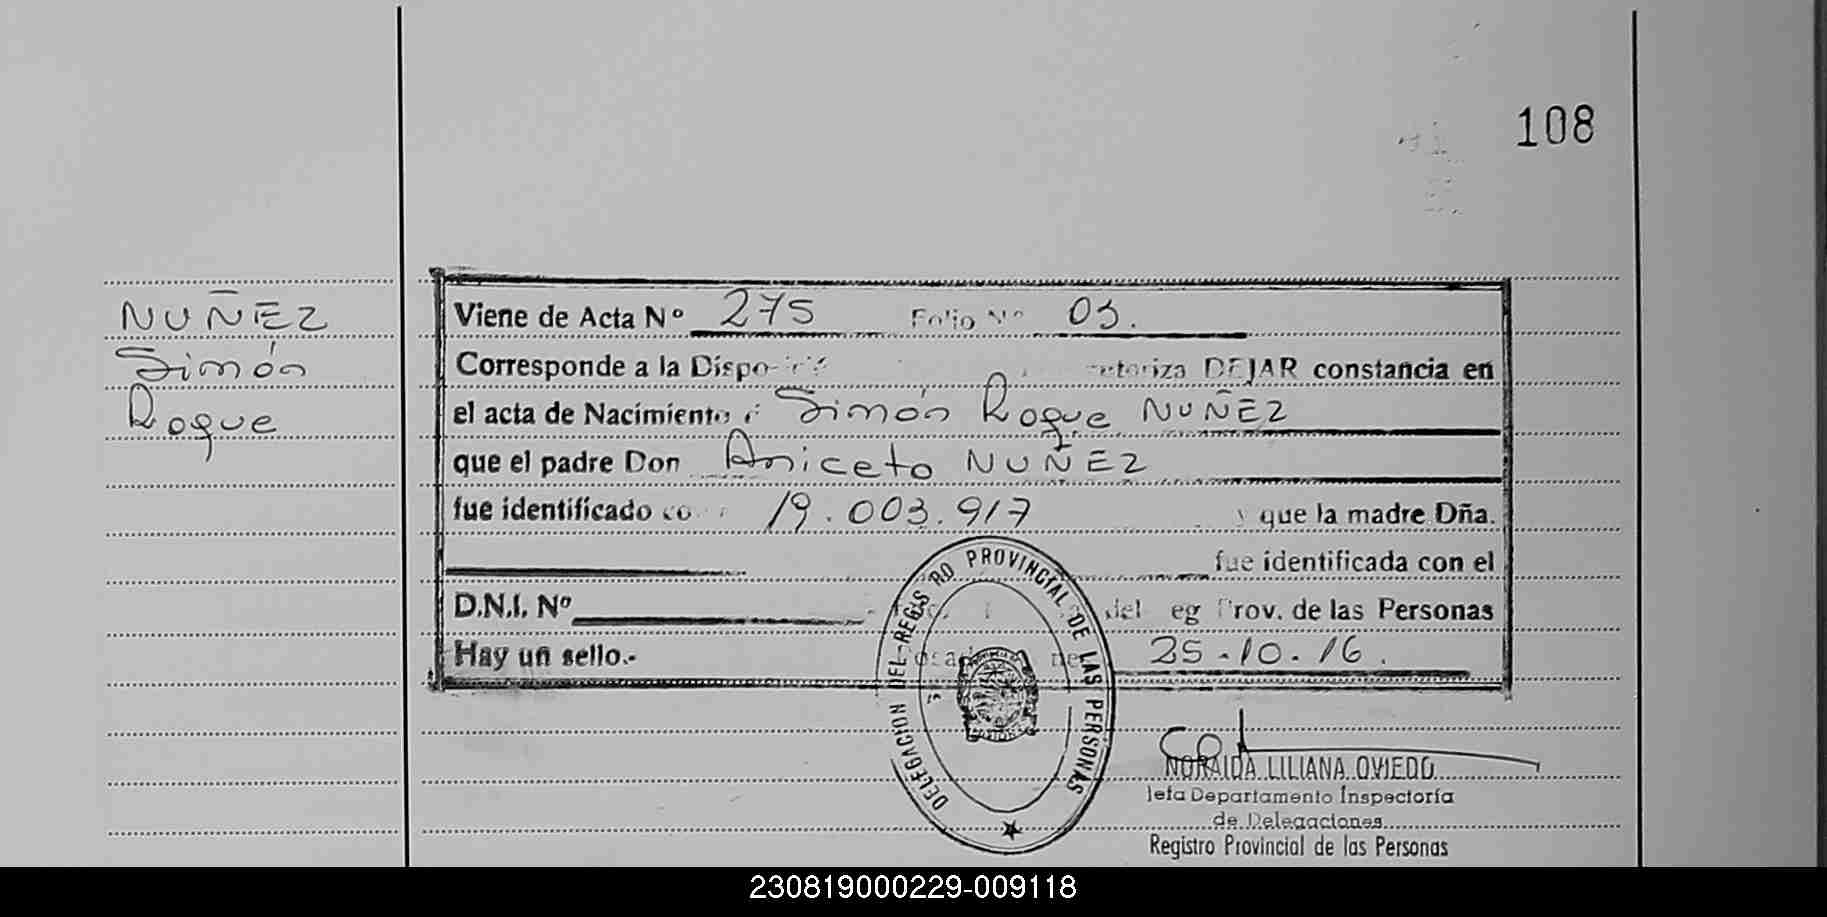 108
NUÑEZ
Simón
Roque
Viene de Acta Nº 275 Folio Nº 03.
Corresponde a la Dispo DEJAR constancia en
el acta de Nacimiento Simón Roque NUÑEZ
que el padre Don Aniceto NUÑEZ
fue identificado co 19.003.917 y que la madre Dña.
fue identificada con el
D.N.I. Nº del eg Prov. de las Personas
Hay un sello.- 25.10.16.
DELEGACION DEL REGIS RO PROVINCIAL DE LAS PERSONAS
NORAIDA LILIANA OVIEDO
Jefa Departamento Inspectoría
de Delegaciones
Registro Provincial de las Personas
230819000229-009118